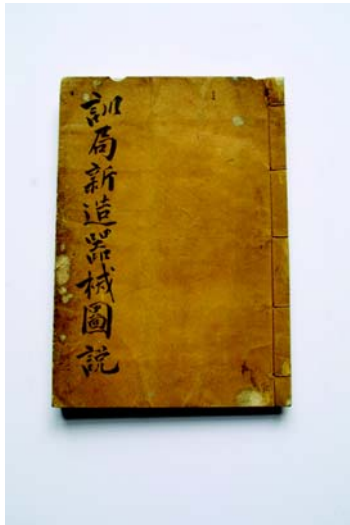 訓局新造器械圖説